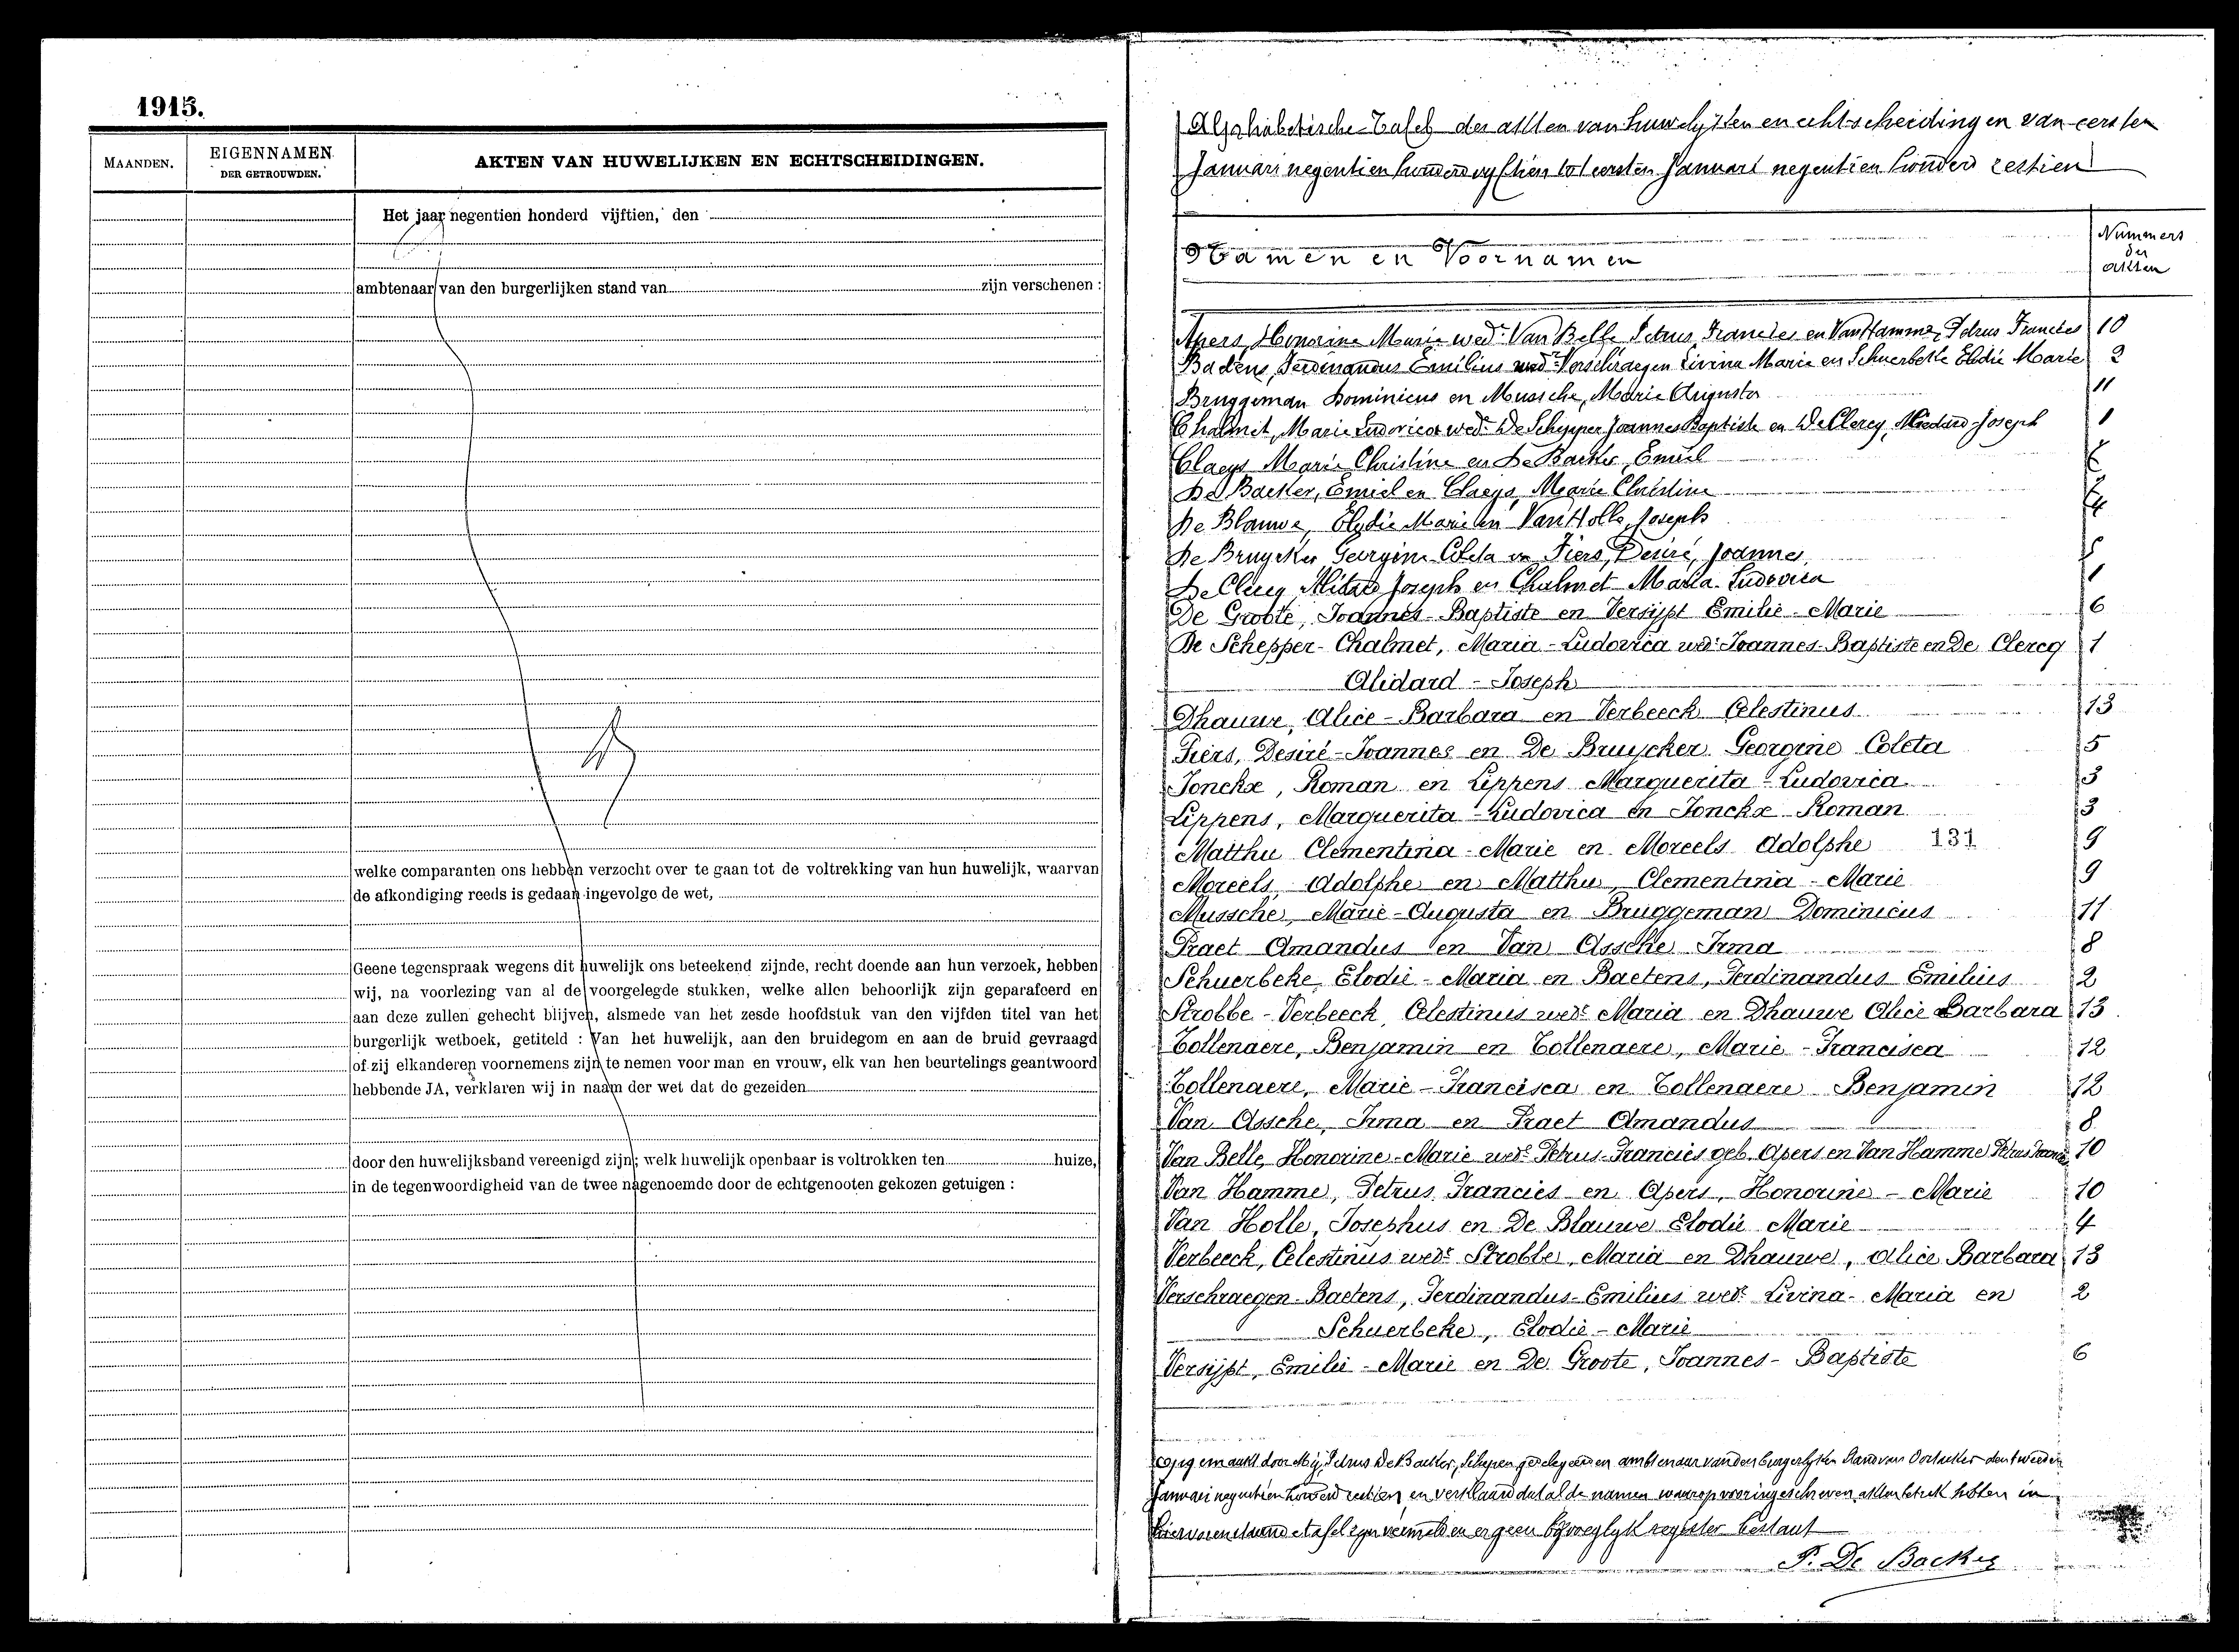 1915.
MAANDEN.
EIGENNAMEN
DER GETROUWDEN.
AKTEN VAN HUWELIJKEN EN ECHTSCHEIDINGEN.
Het jaar negentien honderd vijftien, den
ambtenaar van den burgerlijken stand van zijn verschenen :
welke comparanten ons hebben verzocht over te gaan tot de voltrekking van hun huwelijk, waarvan
de afkondiging reeds is gedaan ingevolge de wet,
Geene tegenspraak wegens dit huwelijk ons beteekend zijnde, recht doende aan hun verzoek, hebben
wij, na voorlezing van al de voorgelegde stukken, welke allen behoorlijk zijn geparafeerd en
aan deze zullen gehecht blijven, alsmede van het zesde hoofdstuk van den vijfden titel van het
burgerlijk wetboek, getiteld : Van het huwelijk, aan den bruidegom en aan de bruid gevraagd
of zij elkanderen voornemens zijn te nemen voor man en vrouw, elk van hen beurtelings geantwoord
hebbende JA, verklaren wij in naam der wet dat de gezeiden
door den huwelijksband vereenigd zijn; welk huwelijk openbaar is voltrokken ten huize,
in de tegenwoordigheid van de twee nagenoemde door de echtgenooten gekozen getuigen :
Alphabetische Tafel der akten van huwelijken en echtscheidingen van eersten
Januari negentien honderd vijftien tot eersten Januari negentien honderd zestien
Namen en Voornamen
Nummers
der
akten
Apers, Honorine Marie wede Van Belle Petrus Francies en Van Hamme, Petrus Francies 10
Badens, Ferdinandus Emilius wed Verschraegen Livina Marie en Schuerbeke Elodie Marie 2
Bruggeman Dominicus en Mussche, Marie Augusta 11
Chalmet, Marie Ludovica wed. De Schepper Joannes Baptiste en De Clercq, Joseph 1
Claeys Marie Christine en De Backer, Emiel
De Backer, Emiel en Claeys, Marie Christine
De Blauwe, Elodie Marie en Van Holle, Joseph
De Bruycker Georgine Coleta en Fiers, Desiré, Joannes
De Clercq Joseph en Chalmet Maria Ludovica 1
De Groote, Joannes-Baptiste en Versijpt Emilie-Marie 6
De Schepper-Chalmet, Maria-Ludovica wed: Joannes-Baptiste en De Clercq 1
Alidard-Joseph
Dhauwe, Alice-Barbara en Verbeeck Celestinus 13
Fiers, Desiré-Joannes en De Bruycker Georgine Coleta 5
Jonckx, Roman en Lippens Marguerita-Ludovica 3
Lippens, Marguerita-Ludovica en Jonckx Roman 3
Matthu Clementina-Marie en Moreels Adolphe 131 9
Moreels Adolphe en Matthu, Clementina-Marie 9
Mussche, Marie-Augusta en Bruggeman Dominicus 11
Praet Amandus en Van Assche Irma 8
Schuerbeke Elodie-Maria en Baetens, Ferdinandus Emilius 2
Strobbe-Verbeeck, Celestinus wedr Maria en Dhauwe Alice Barbara 13
Collenaere, Benjamin en Collenaere, Marie-Francisca 12
Collenaere, Marie-Francisca en Collenaere Benjamin 12
Van Assche, Irma en Praet Amandus 8
Van Belle Honorine-Marie wede Petrus-Francies geb. Apers en Van Hamme Petrus Francies 10
Van Hamme, Petrus Francies en Apers, Honorine-Marie 10
Van Holle, Josephus en De Blauwe Elodie Marie 4
Verbeeck, Celestinus wedr Strobbe, Maria en Dhauwe, Alice Barbara 13
Verschraegen-Baetens, Ferdinandus-Emilius wedr Livina-Maria en 2
Schuerbeke, Elodie-Marie
Versijpt, Emilie-Marie en De Groote, Joannes-Baptiste 6
opgemaakt door Mij, Petrus De Backer, Schepen ambtenaar van den burgerlijken stand van Oostacker den tweeden
Januari negentien honderd zestien en verklaard dat al de namen waarop akten betrek hebben in
tafel zijn vermeld en er geen bijvoeglyk register bestaat
P. De Backer